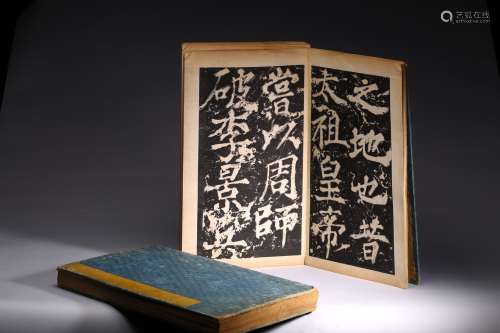 之地也昔
太祖皇帝
嘗以周師
破李景兵
艺狐在线